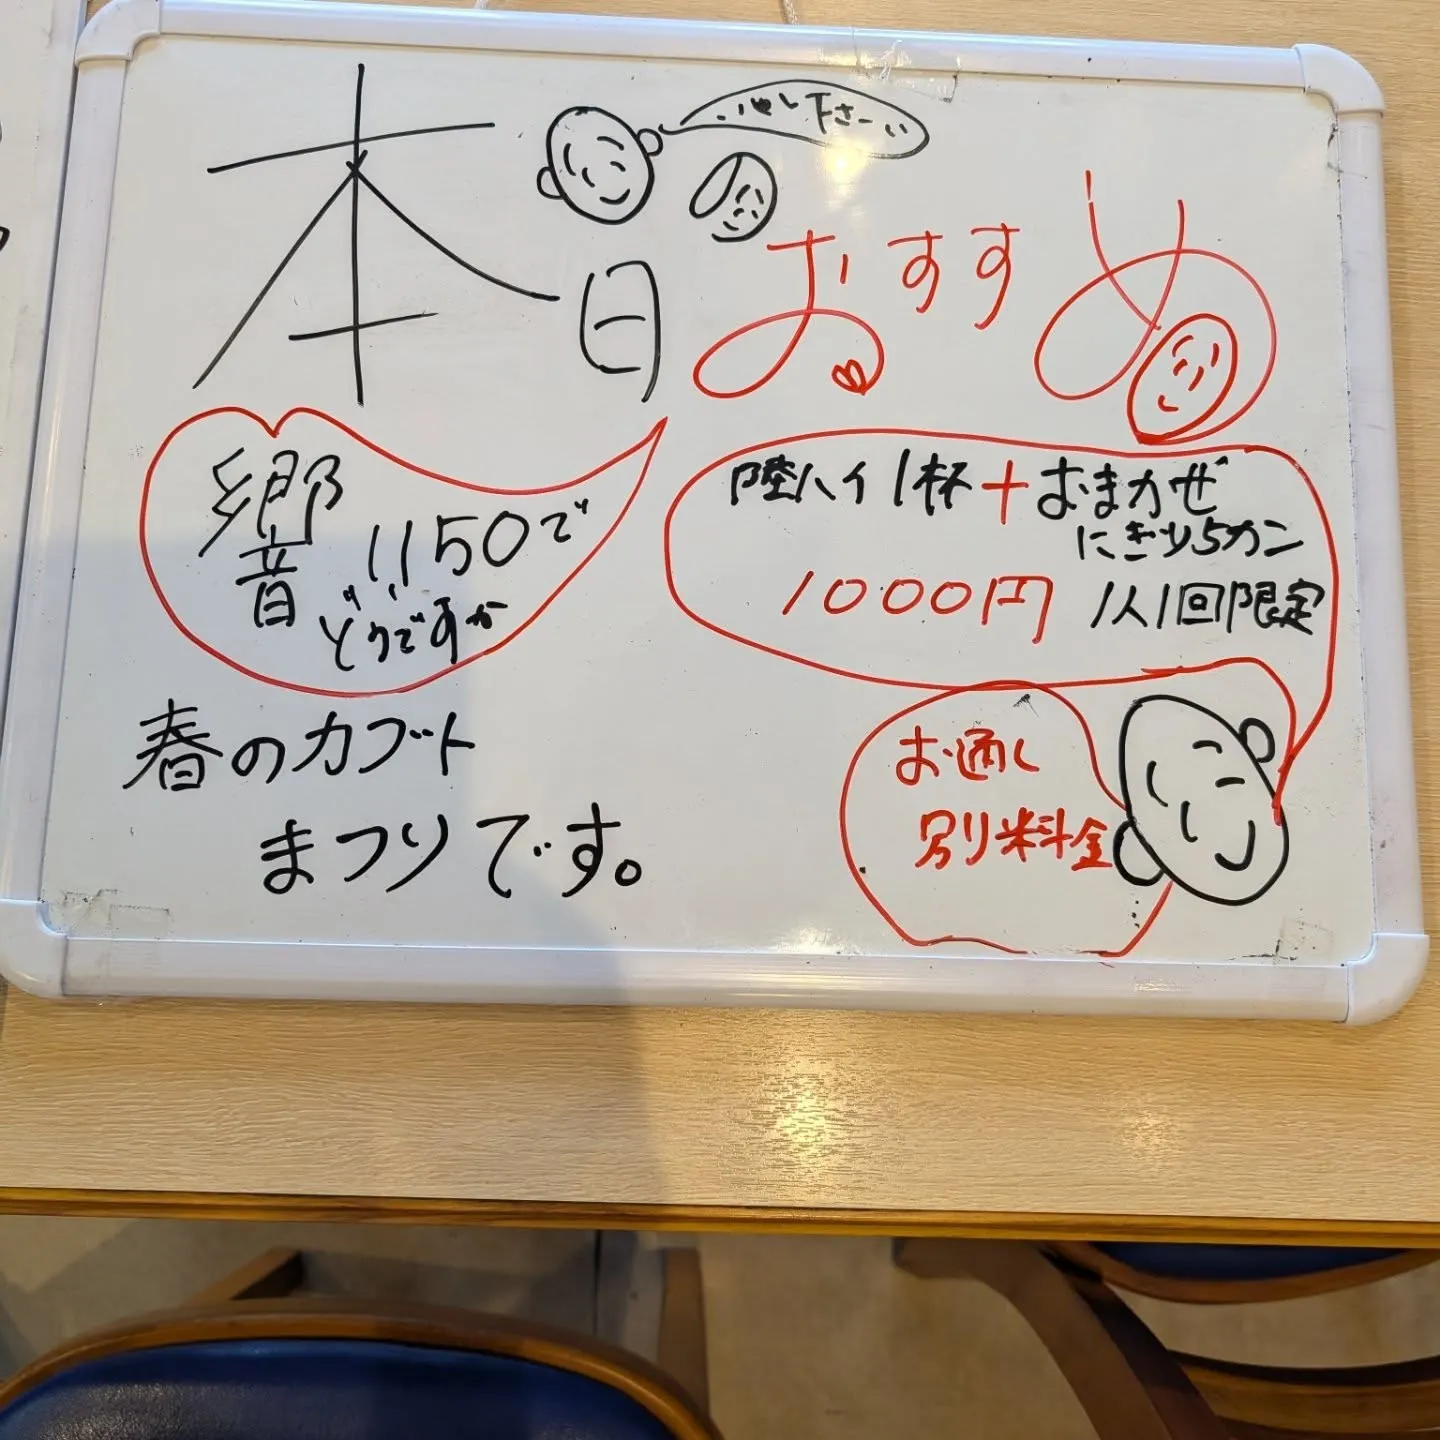 本日
おすすめ
下さーい
響 1150で
どうですか
陸ハイ1杯+おまかせ
にぎり5カン
1000円 1人1回限定
春のカブト
まつりです。
お通し
別料金